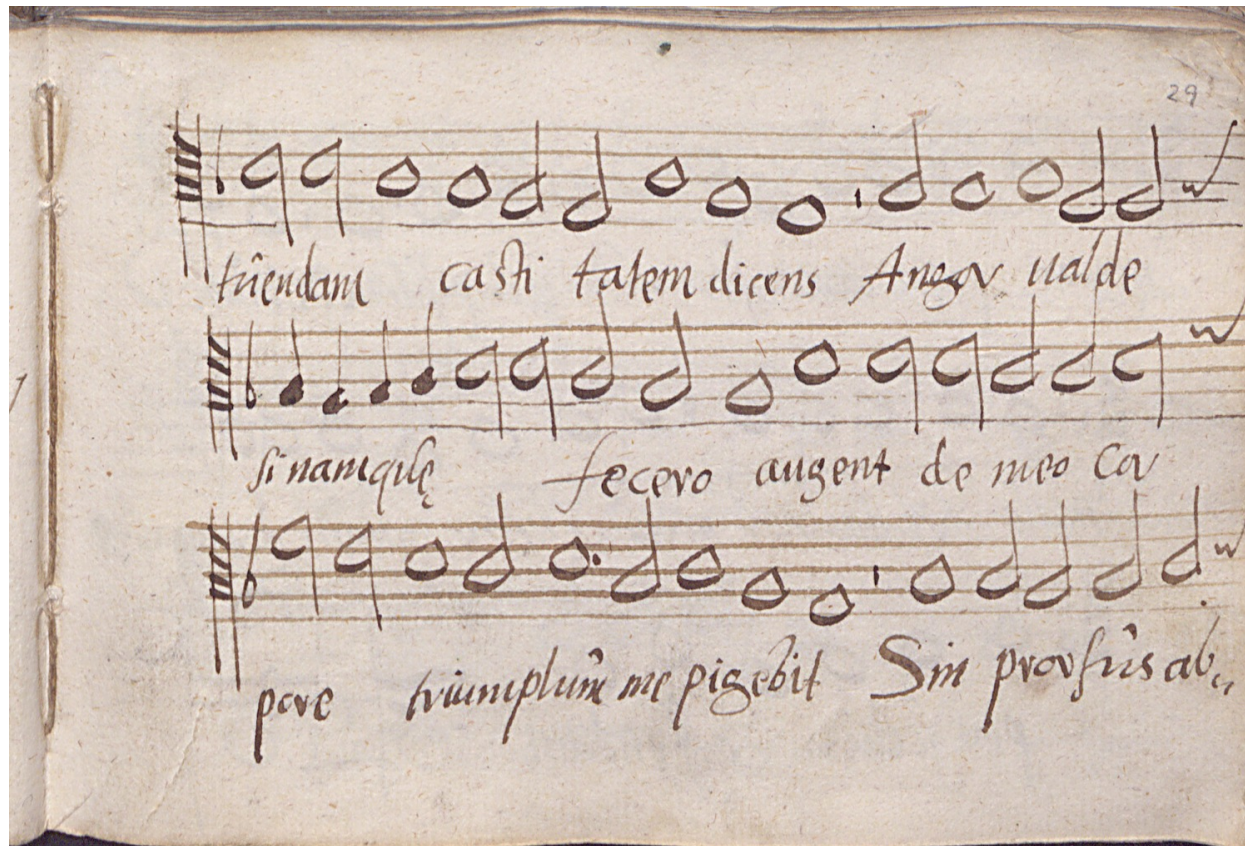 29
tuendam casti tatem dicens Angor ualde
si namque fecero augent de meo Cor
pore triumphum me pigebit Sin prorsus ab